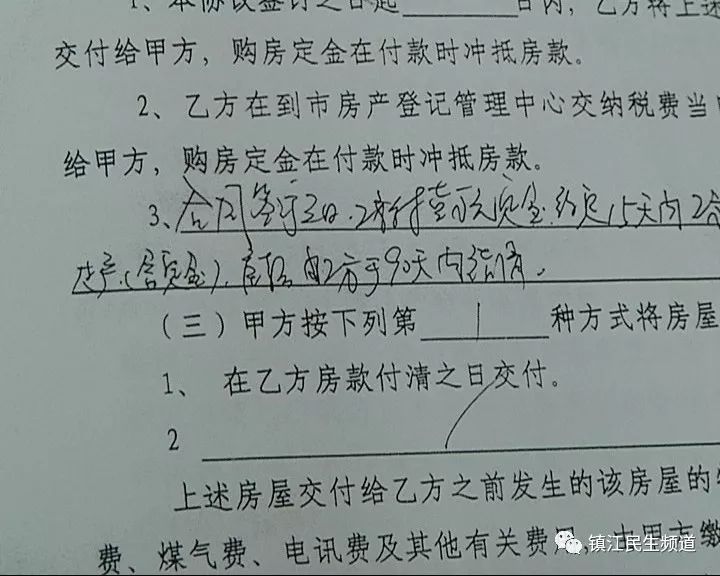 1、本协议签订之日起________日内，乙方将上述
交付给甲方，购房定金在付款时冲抵房款。
2、乙方在到市房产登记管理中心交纳税费当
给甲方，购房定金在付款时冲抵房款。
3、合同签订之日，乙方付壹万元定金，约定15天内乙
（含定金），尾款由乙方于90天内结清。
（三）甲方按下列第 1 种方式将房屋
1、 在乙方房款付清之日交付。
2
上述房屋交付给乙方之前发生的该房屋的
费、煤气费、电讯费及其他有关费用，由甲方缴
镇江民生频道